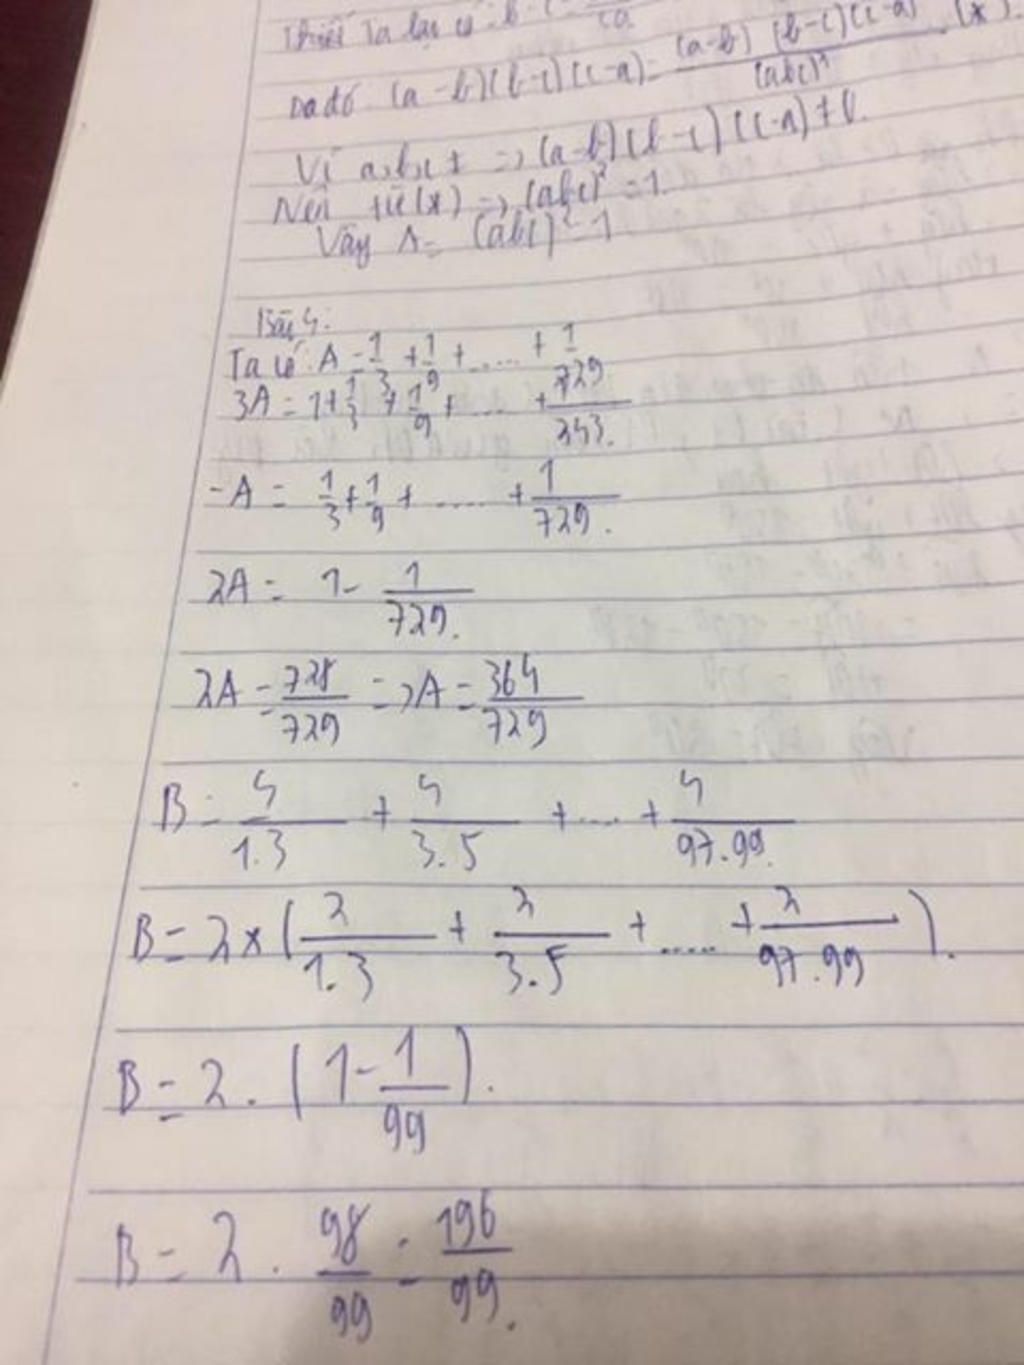 Ta lại có: b-c =
Do đó (a-b)(b-c)(c-a) = (a-b)(b-c)(c-a) / (abc)² (*)
Vì a,b,c ≠ => (a-b)(b-c)(c-a) ≠ 0.
Nên từ (*) => (abc)² = 1.
Vậy A = (abc)² = 1
Bài 4:
Ta có: A = 1/3 + 1/9 + ..... + 1/729
3A = 1 + 1/3 + 1/9 + ..... + 1/243.
-A = 1/3 + 1/9 + ..... + 1/729.
2A = 1 - 1/729.
2A = 728/729 => A = 364/729
B = 4/1.3 + 4/3.5 + .... + 4/97.99.
B = 2 × (2/1.3 + 2/3.5 + ..... + 2/97.99).
B = 2 . (1 - 1/99).
B = 2 . 98/99 = 196/99.